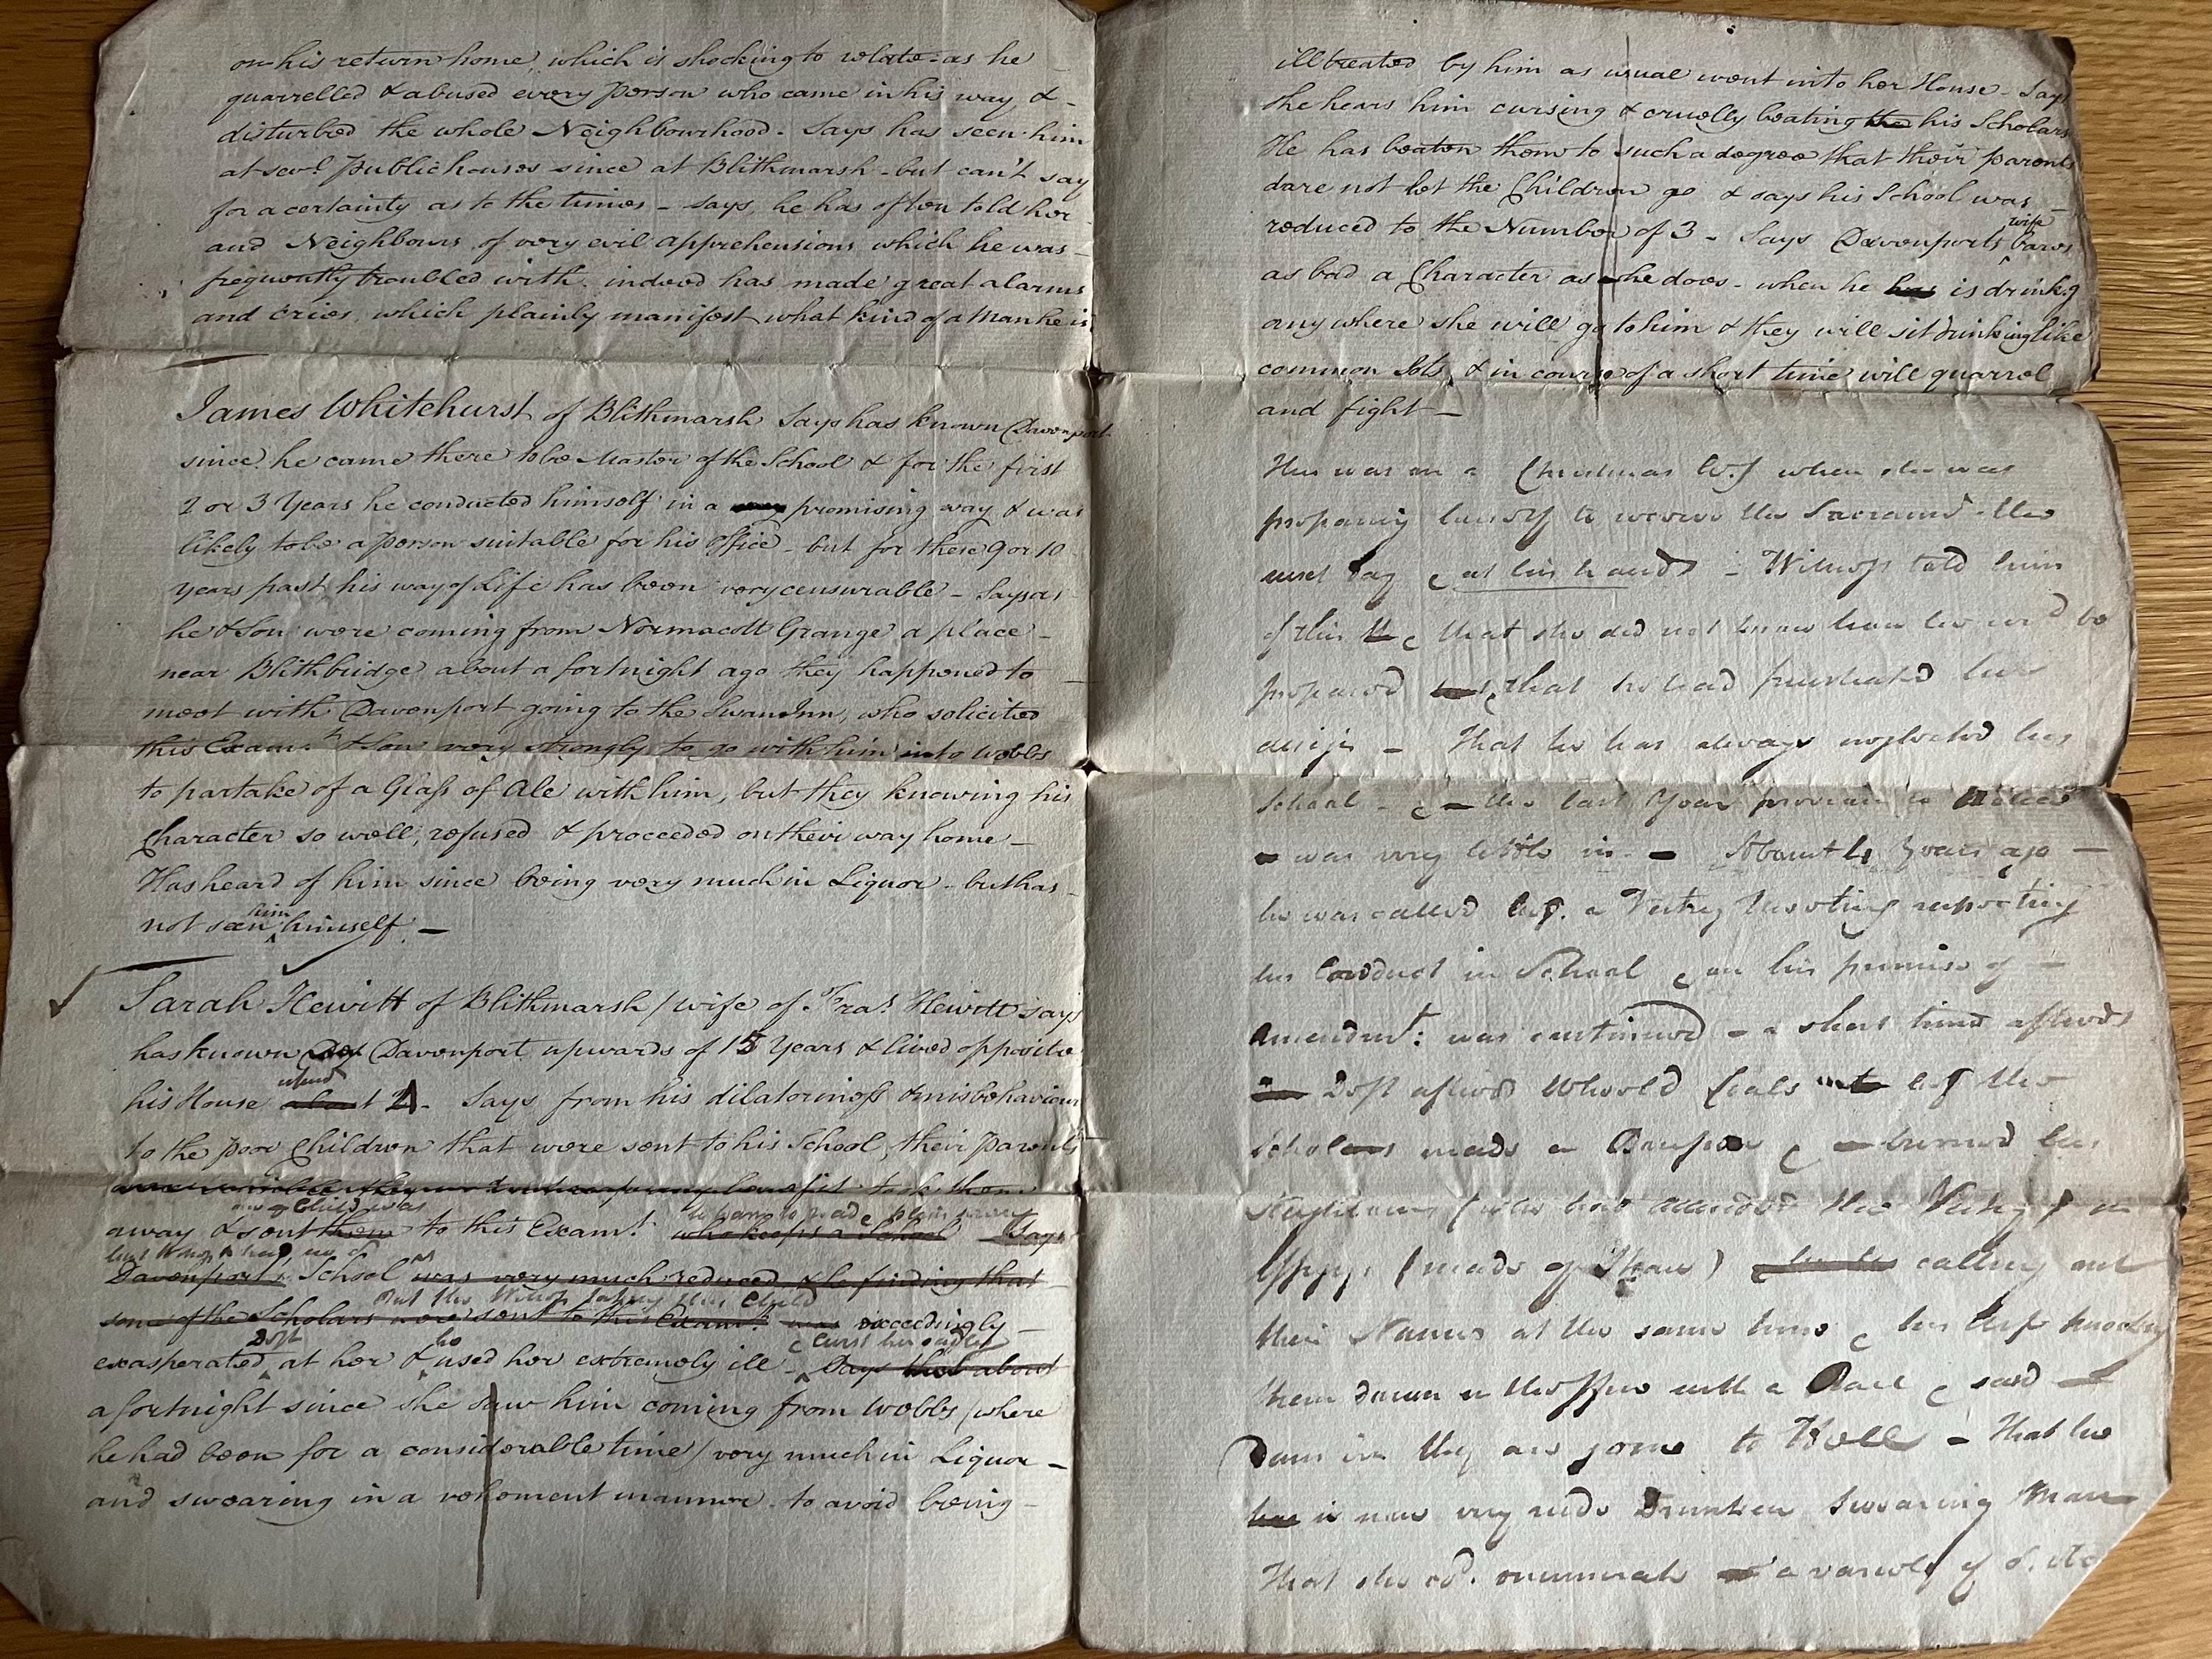 on his return home, which is shocking to relate - as he
quarrelled & abused every Person who came in his way, & -
disturbed the whole Neighbourhood - Says has seen him
at sevl. Public houses since at Blithmarsh - but can't say
for a certainty as to the times - says, he has often told her -
and Neighbours of very evil apprehensions which he was -
frequently troubled with, indeed has made great alarms
and Cries, which plainly manifest what kind of a Man he is
James Whitehurst of Blithmarsh Says has known Davenport
since he came there to be Master of the School & for the first
2 or 3 Years he conducted himself in a promising way & was
likely to be a Person suitable for his Office - but for these 9 or 10
years past his way of Life has been very censurable - Says as
he & Son were coming from Normacott Grange a place -
near Blithbridge about a fortnight ago they happened to -
meet with Davenport going to the Swan Inn, who solicited
this Exam.t & Son very strongly to go with him into Webbs
to partake of a Glass of Ale with him, but they knowing his
Character so well, refused & proceeded on their way home -
Has heard of him since being very much in Liquor - but has -
not seen him himself. -
Sarah Hewitt of Blithmarsh / wife of Fras. Hewitt says
has known Davenport upwards of 15 Years & lived opposite
his House about 2 - Says from his dilatoriness & misbehaviour
to the poor Children that were sent to his School, their Parents
took them
away & sent them to this Exam.t who keeps a School - Says
Child was
to learn to read & plain
Davenport's School was very much reduced & he finding that
But this Witness taking this Child
some of the Scholars were sent to this Exam.t was exceedingly -
exasperated at her & he used her extremely ill - Says that about
Deft
& curst her sadly
a fortnight since she saw him coming from Webbs / where
he had been for a considerable time / very much in Liquor -
and swearing in a vehement manner - to avoid being -
ill treated by him as usual went into her House - Says
she hears him cursing & cruelly beating the his Scholars
He has beaten them to such a degree that their parents
dare not let the Children go & says his School was -
reduced to the Number of 3 - Says Davenports wife bears
as bad a Character as he does - when he has is drinkg
any where she will go to him & they will sit drinking like
common Sots, & in course of a short time will quarrel
and fight -
This was on a Christmas when she was
preparing herself to receive the Sacramt. the
next Day - Witness told him
of this that she did not know how he wod. be
prepared that he had frustrated her
design - That he has always neglected his
School - the last Year previous to
was very little in - About 4 Years ago -
he was called bef. a Vestry Meeting respecting
his Conduct in School & on his promise of -
amendmt: was continued - a short time afterwds
Deft afterwds Coals of the
Scholars made a Bonfire & burned his
Neighbours (who had attended the Vestry) in
Effigy (made of Straw) calling out
their Names at the same time & his Wife knocking
them down in the Fire with a & said
Damn em they are gone to Hell - That he
is now very rude Drunken Swearing Man
That she cd. enumerate a variety of